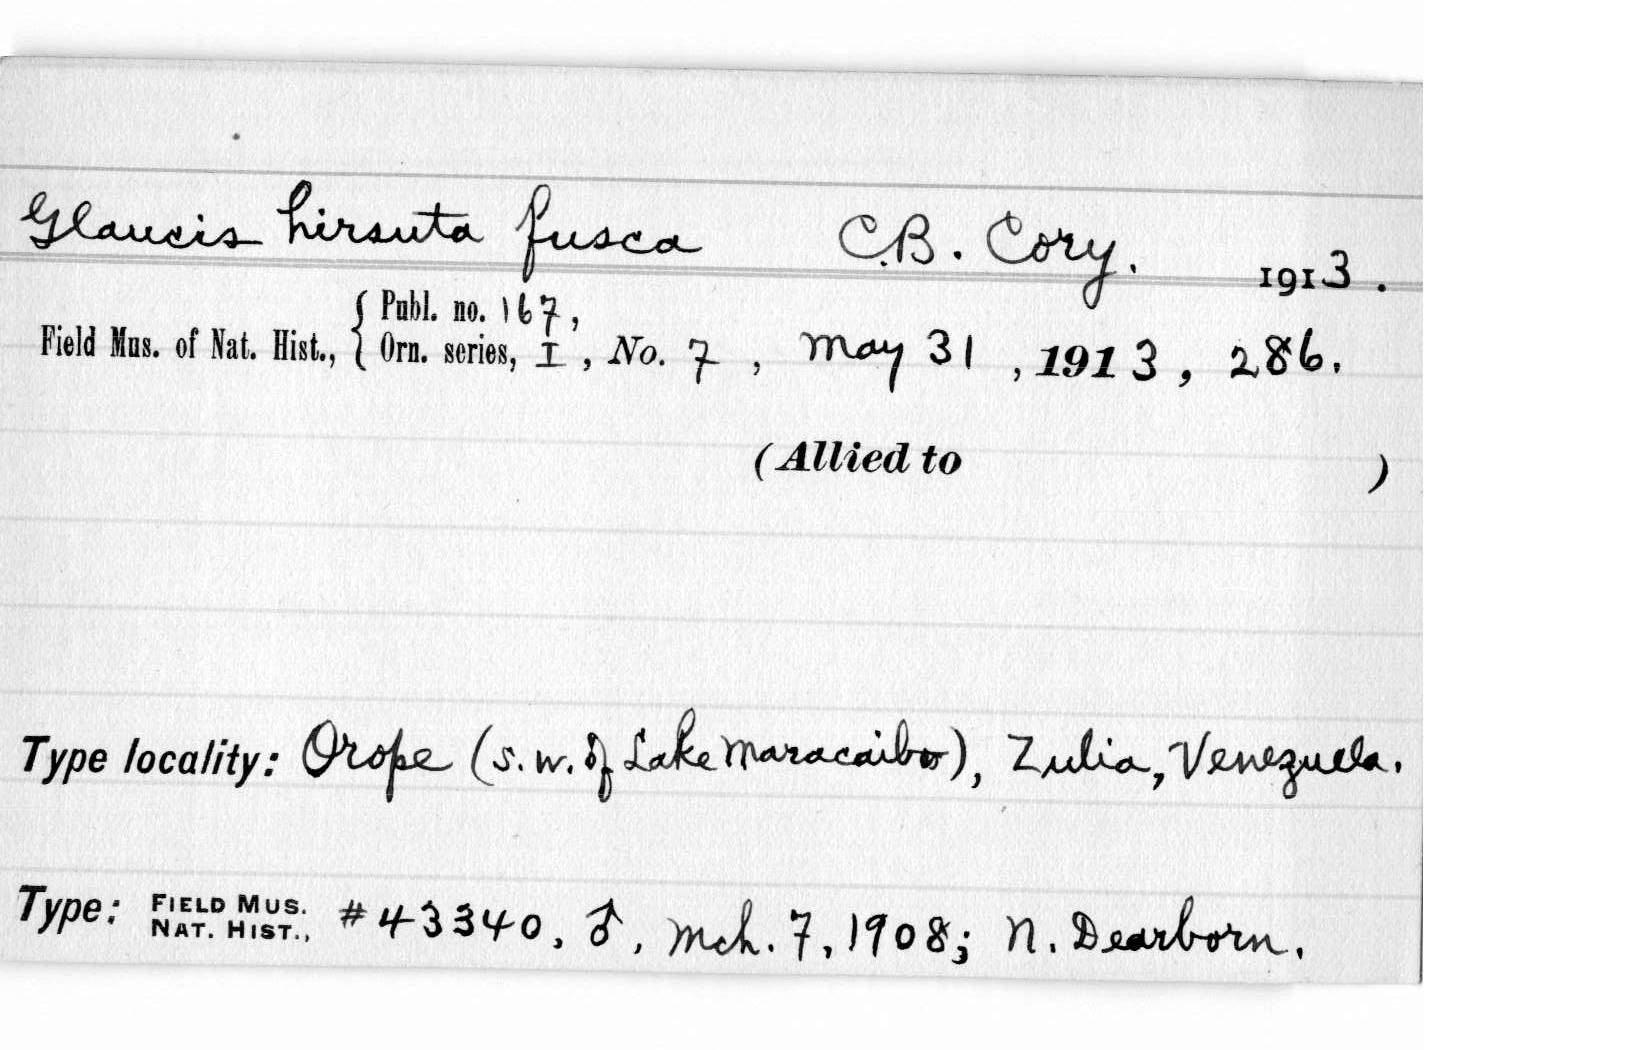 Glaucis hirsuta fusca C.B. Cory. 1913.
Publ. no. 167,
Field Mus. of Nat. Hist., { Orn. series, I, No. 7, May 31, 1913, 286.
(Allied to )
Type locality: Orope (s.w. of Lake Maracaibo), Zulia, Venezuela.
Type: FIELD MUS. NAT. HIST., #43340, ♂, Mch. 7, 1908; N. Dearborn.